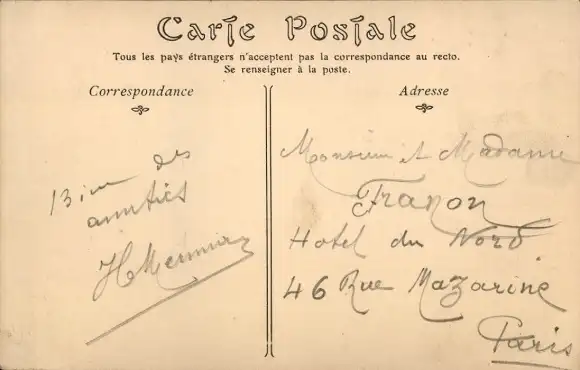 Carte Postale
Tous les pays étrangers n'acceptent pas la correspondance au recto.
Se renseigner à la poste.
Correspondance
Adresse
des
Monsieur et Madame
Franon
Hotel du Nord
46 Rue Mazarine
Paris